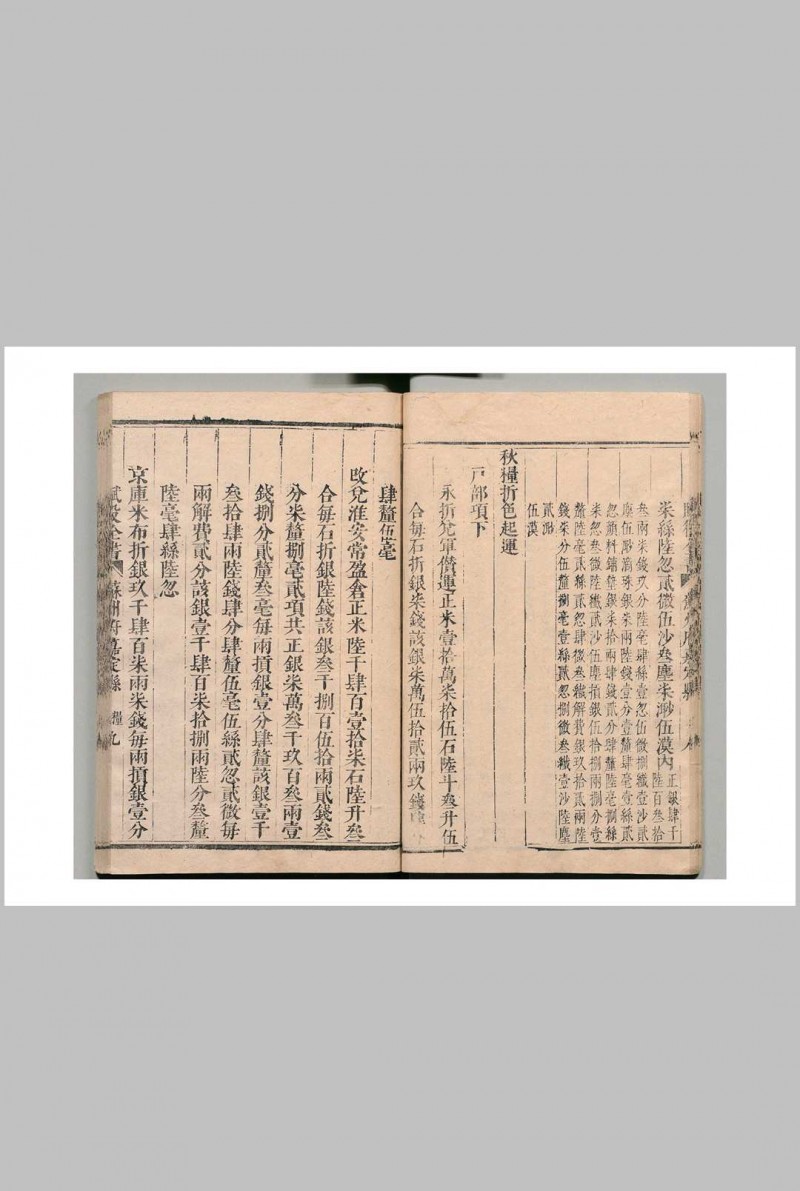 柒絲陸忽貳微伍沙叁塵柒渺伍漠內
正銀肆千
陸百叁拾
叁兩柒錢玖分陸毫肆絲壹忽伍微捌纖壹沙貳
塵伍渺
銀柒兩陸錢壹分壹釐肆毫壹絲貳
忽
銀柒拾兩肆錢貳分肆釐陸毫捌絲
柒忽叁微陸纖貳沙伍塵損銀伍拾捌兩捌分壹
釐陸毫貳絲貳忽肆微叁纖解費銀玖拾貳兩陸
錢柒分伍釐捌毫壹絲貳忽捌微叁纖壹沙陸塵
貳渺
伍漠
秋糧折色起運
戶部項下
永折兌軍儹運正米壹拾萬柒拾伍石陸斗叁升伍
合每石折銀柒錢該銀柒萬伍拾貳兩玖錢
肆釐伍毫
改兌淮安常盈倉正米陸千肆百壹拾柒石陸升叁
合每石折銀陸錢該銀叁千捌百伍拾兩貳錢叁
分柒釐捌毫貳項共正銀柒萬叁千玖百叁兩壹
錢捌分貳釐叁毫每兩損銀壹分肆釐該銀壹千
叁拾肆兩陸錢肆分肆釐伍毫伍絲貳忽貳微每
兩解費貳分該銀壹千肆百柒拾捌兩陸分叁釐
陸毫肆絲陸忽
京庫米布折銀玖千肆百柒兩柒錢每兩損銀壹分
賦役全書 蘇州府嘉定縣 糧 九